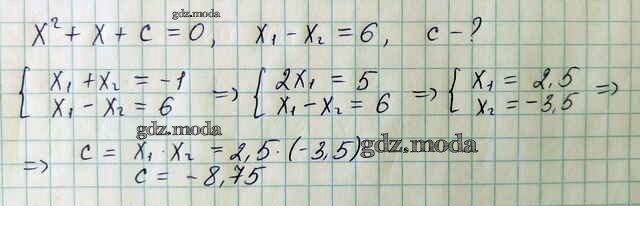 gdz.moda
x² + x + c = 0, x₁ - x₂ = 6, c - ?
{ x₁ + x₂ = -1 => { 2x₁ = 5 => { x₁ = 2,5 =>
x₁ - x₂ = 6 x₁ - x₂ = 6 x₂ = -3,5
gdz.moda
=> c = x₁ · x₂ = 2,5 · (-3,5) gdz.moda
c = -8,75